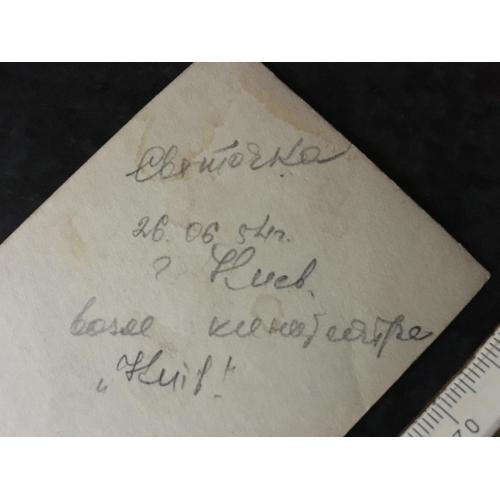 Светочка
26.06.54г.
г Киев.
возле кинотеатра
„Київ!"
70